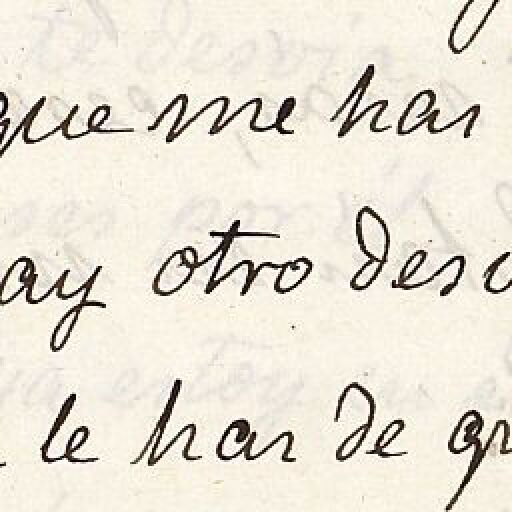 que me has
ay otro des
le has de